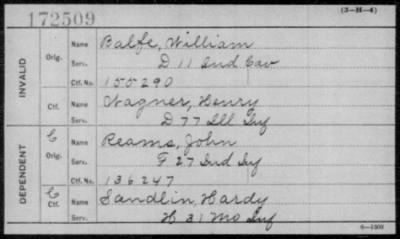 172509
(3-H-4)
INVALID
Orig.
Name Balfe, William
Serv. D 11 Ind Cav
Ctf. No. 155290
Ctf.
Name Wagner, Henry
Serv. D 77 Ill Inf
DEPENDENT
C
Orig.
Name Reams, John
Serv. F 27 Ind Inf
Ctf. No. 136247
C
Ctf.
Name Sandlin, Hardy
Serv. H 31 Mo Inf